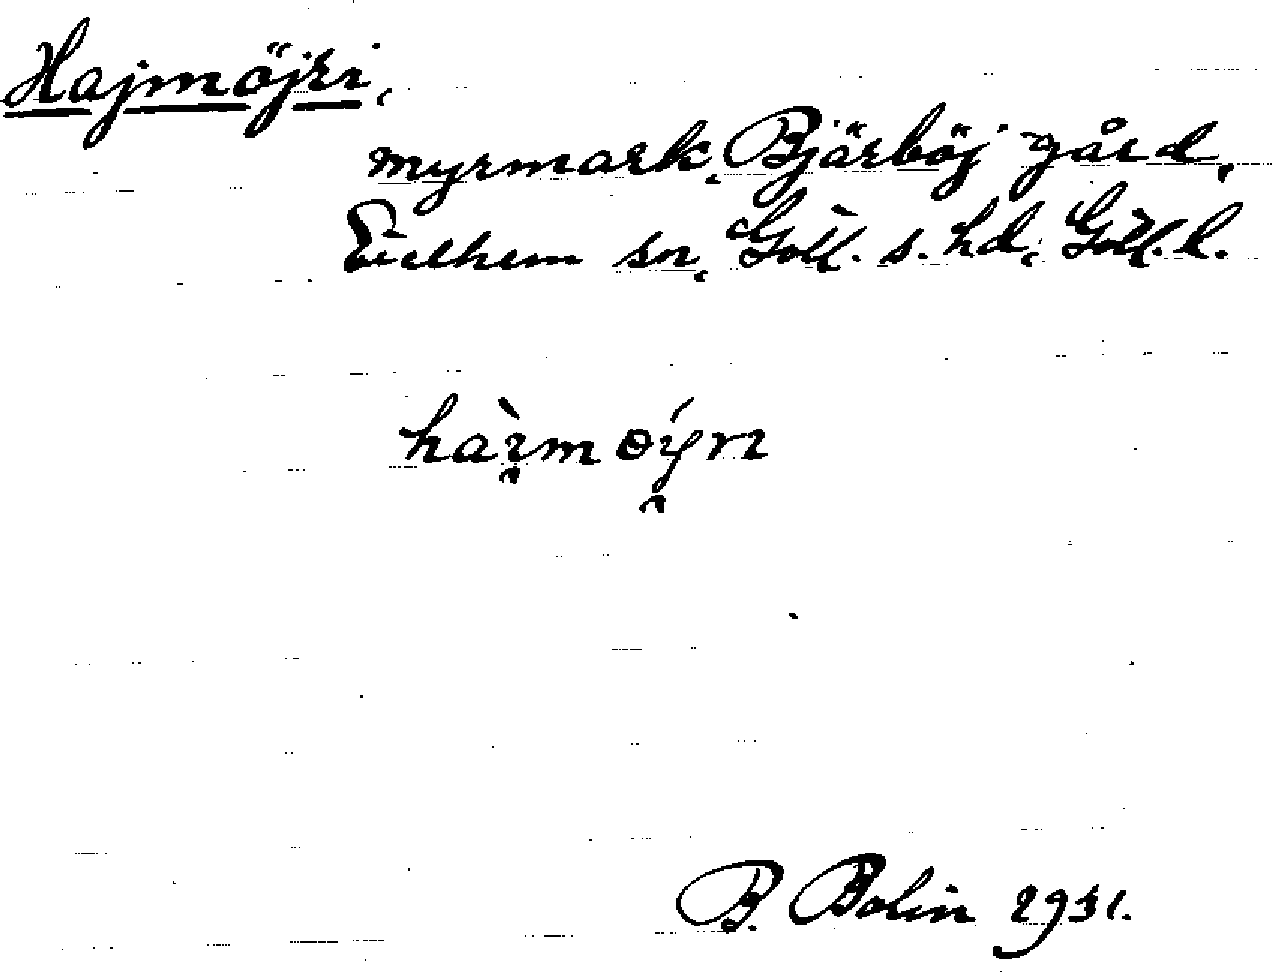 Hajmöjri,
myrmark, Bjärböj gård,
Eielhem sn, Gotl. s. hd, Gotl. l.
hàı̯m öy̯rı
B. Bolin 1931.